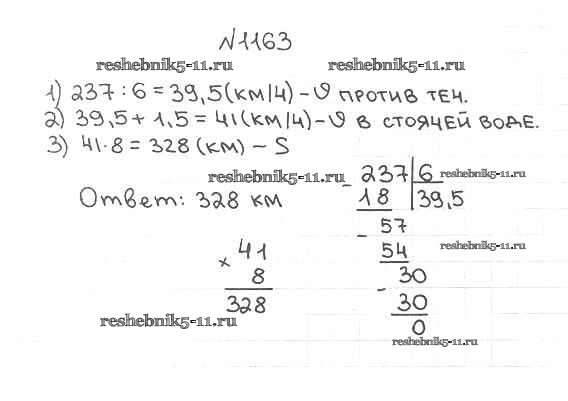 №1163
reshebnik5-11.ru reshebnik5-11.ru
1) 237 : 6 = 39,5 (км/ч) – υ против теч.
2) 39,5 + 1,5 = 41 (км/ч) – υ в стоячей воде.
3) 41 · 8 = 328 (км) – S
reshebnik5-11.ru
Ответ: 328 км
- 237 | 6 reshebnik5-11.ru
18 39,5
- 57
54 reshebnik5-11.ru
- 30
30
0
× 41
8
328
reshebnik5-11.ru
reshebnik5-11.ru